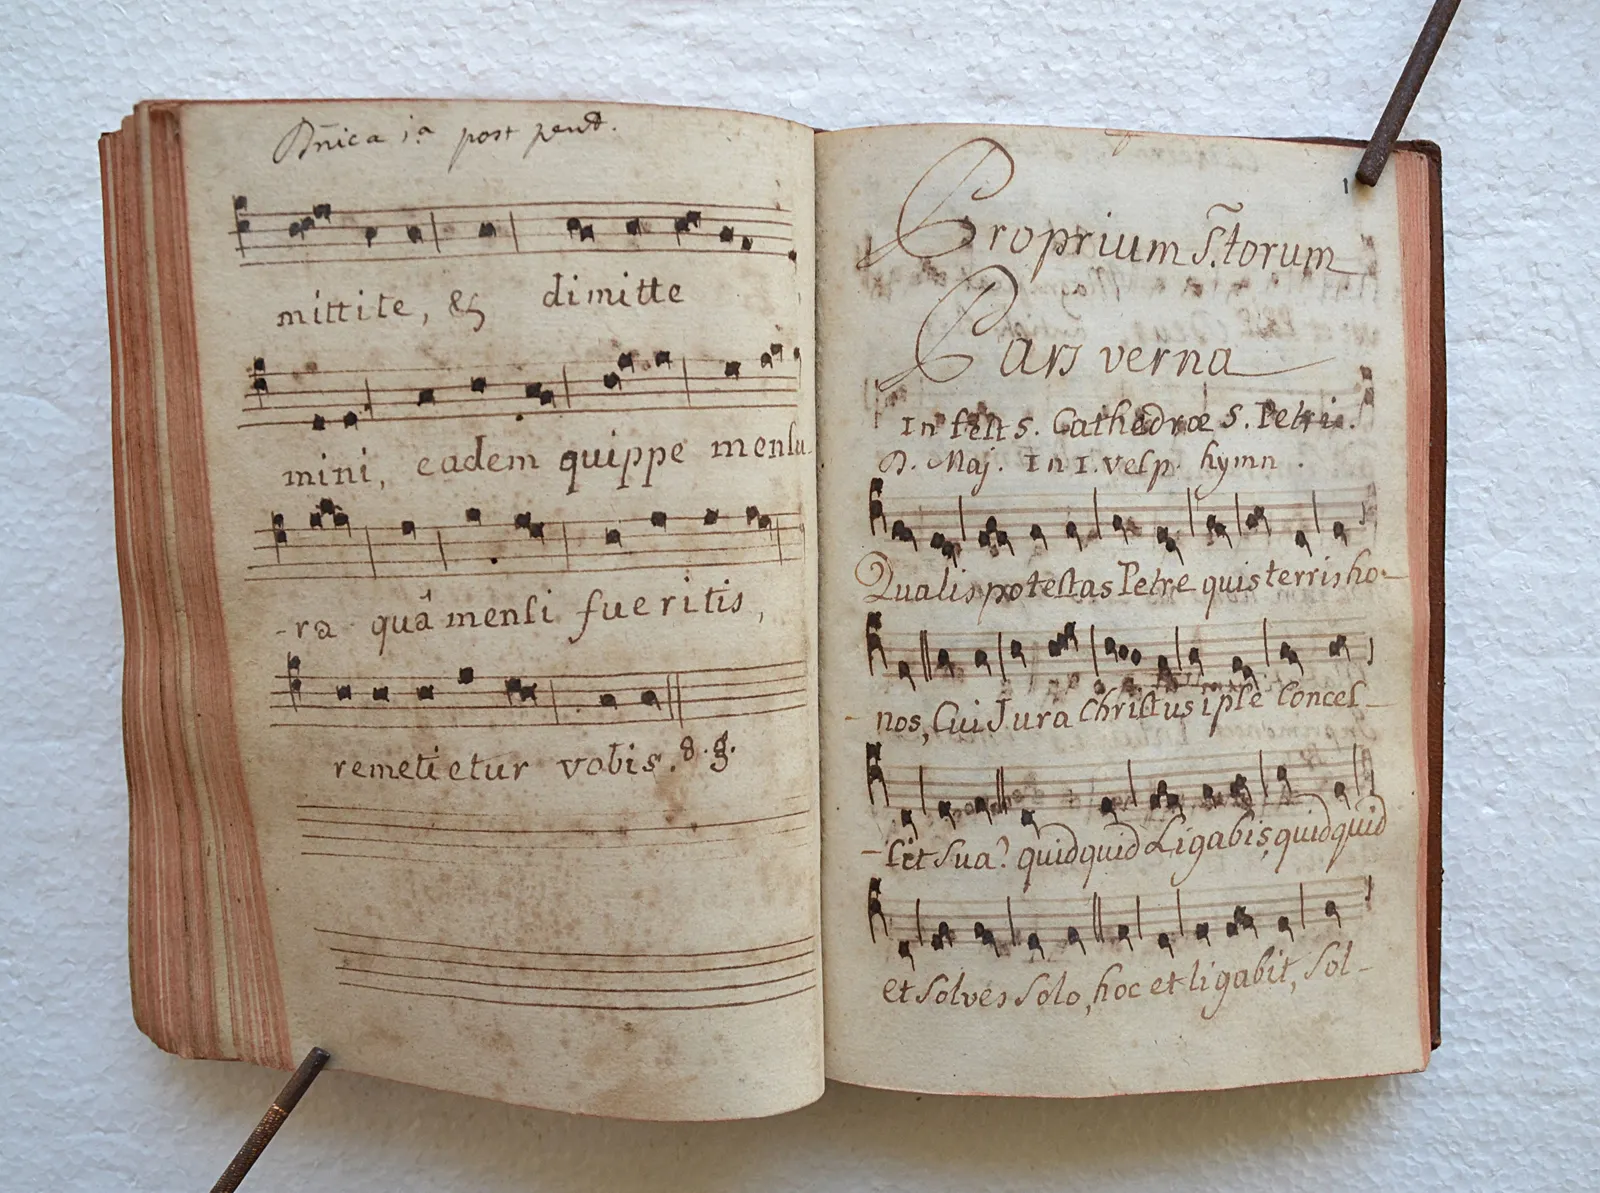 Dn̄ica 1.a post pent.
mittite, & dimitte
mini, eadem quippe mensu-
-ra quâ mensi fueritis,
remetietur vobis. 8. g.
1
Proprium S.̃torum
Pars verna
In fest s. Cathedræ S. Petri.
D. Maj. In I. vesp. hymn.
Qualis potestas Petre quis terris ho-
nos, Cui Jura Christus ipse Concel-
-sit Sua? quidquid Ligabis, quidquid
et solves solo, hoc et ligabit, Sol-